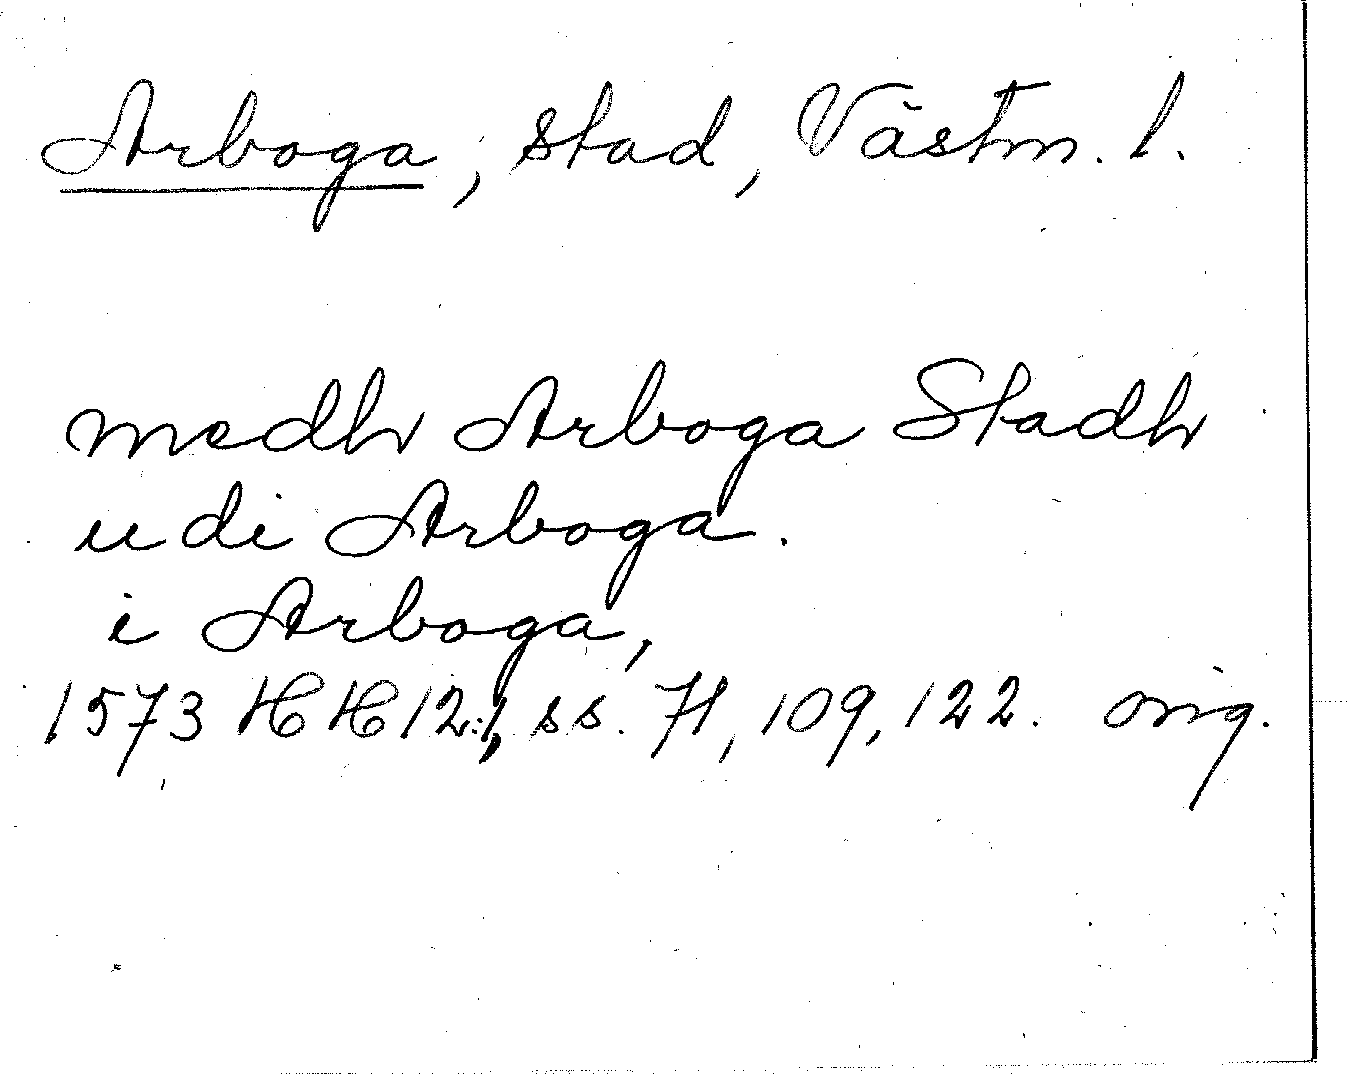 Arboga, stad, Västm. l.
medh Arboga Stadh
udi Arboga.
i Arboga,
1573 HH 12:1, ss. 71, 109, 122. orig.